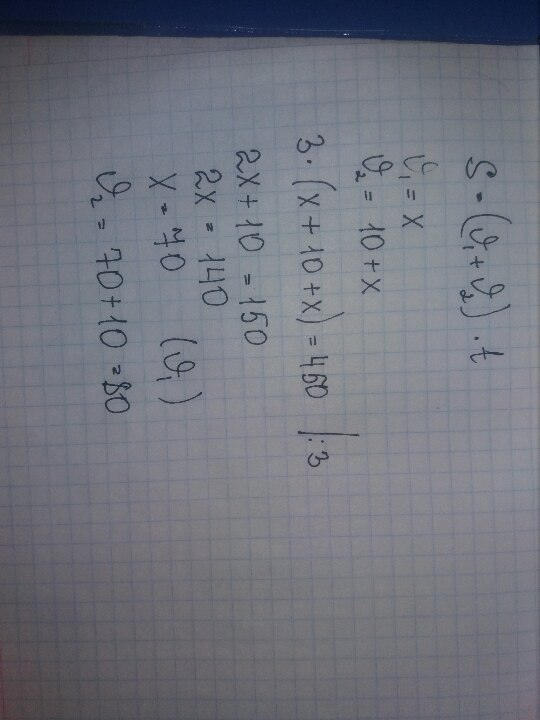 S = (ϑ₁ + ϑ₂) · t
ϑ₁ = x
ϑ₂ = 10 + x
3 · (x + 10 + x) = 450 |:3
2x + 10 = 150
2x = 140
x = 70 (ϑ₁)
ϑ₂ = 70 + 10 = 80